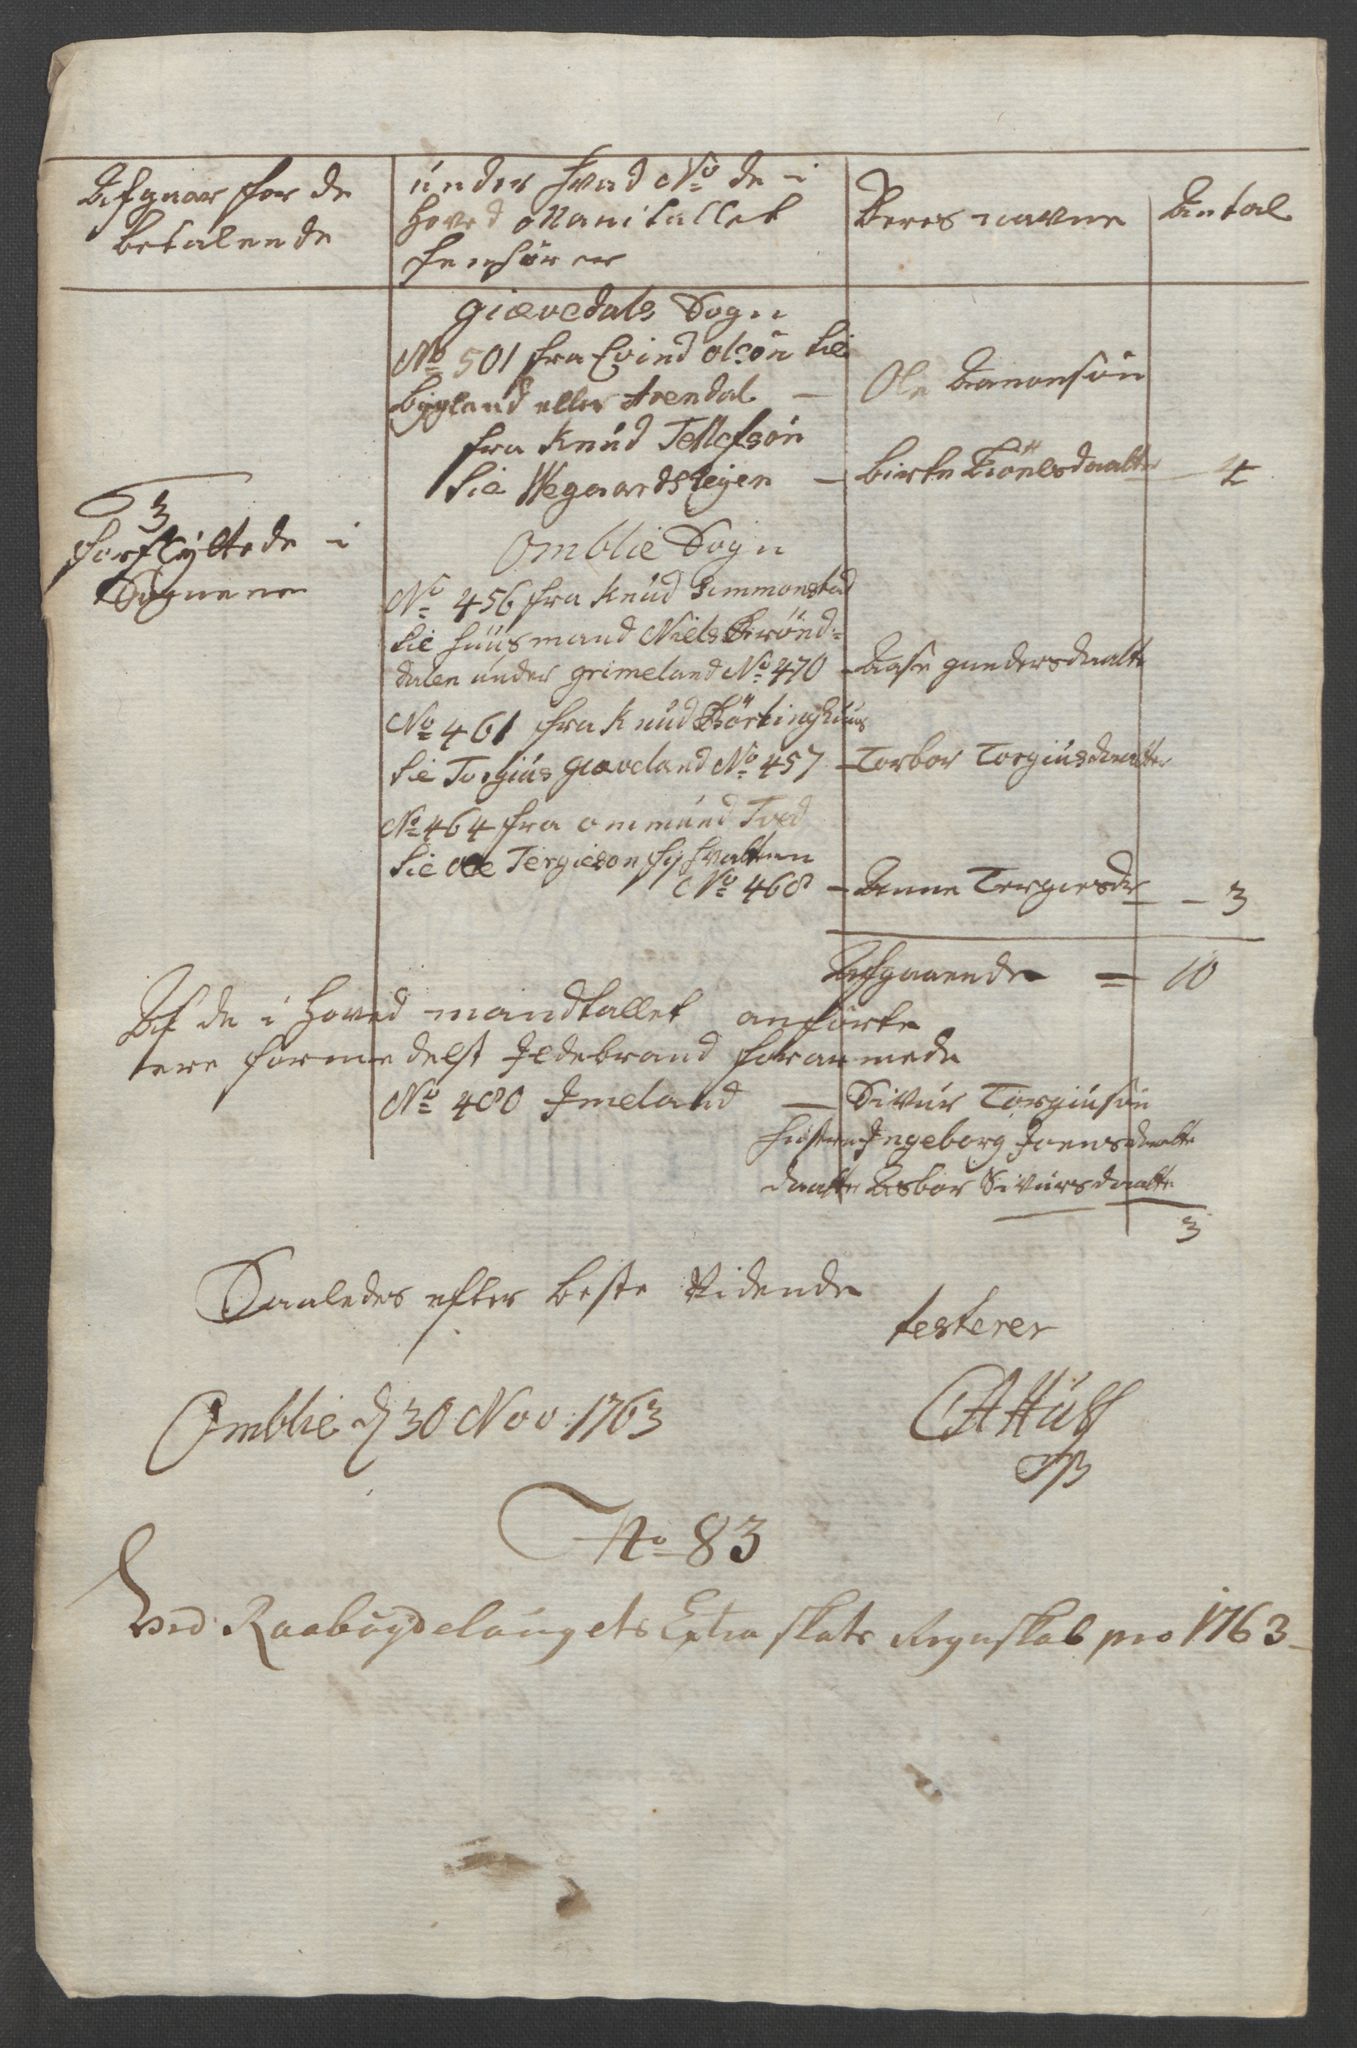 Afgaar for de
betalende
under hvad No de i
hoved Mantallet
henhörer
Deres navne
Antal
Giævedals Sogn
No 501 fra Evind olsön til
bygland eller Arendal —
Ole Aanonsön
fra Knud Tellefsön
til Wegaardsheyen —
birte Kiöelsdaatter — 4
3
forflyttede i
Sognene
Omblie Sogn
No 456 fra Knud Simmonstad
til huusmand Niels Brönd-
dalen under grimeland No 470 —
Aase gundersdaatte
No 461 fra Knud
til Torgius Giæveland No 457 —
Torbor Torgiusdaatter
No 464 fra ommund Tved
til ole Tergieson
No 468 —
Anne Tergiesdr — 3
Afgaaende = 10
Af de i hoved mandtallet anförte
ere formedelst Ildebrand forarmede
No 480 Imeland —
Sivur Torgiusön
hustru Ingeborg Joensdaatte
daatte Asbor Sivursdaatte
3
Saaledes efter beste Vidende
testerer
Omblie d 30 Nov: 1763
No 83
ved Raabøydelaugets Extra skats Regnskab pro 1763